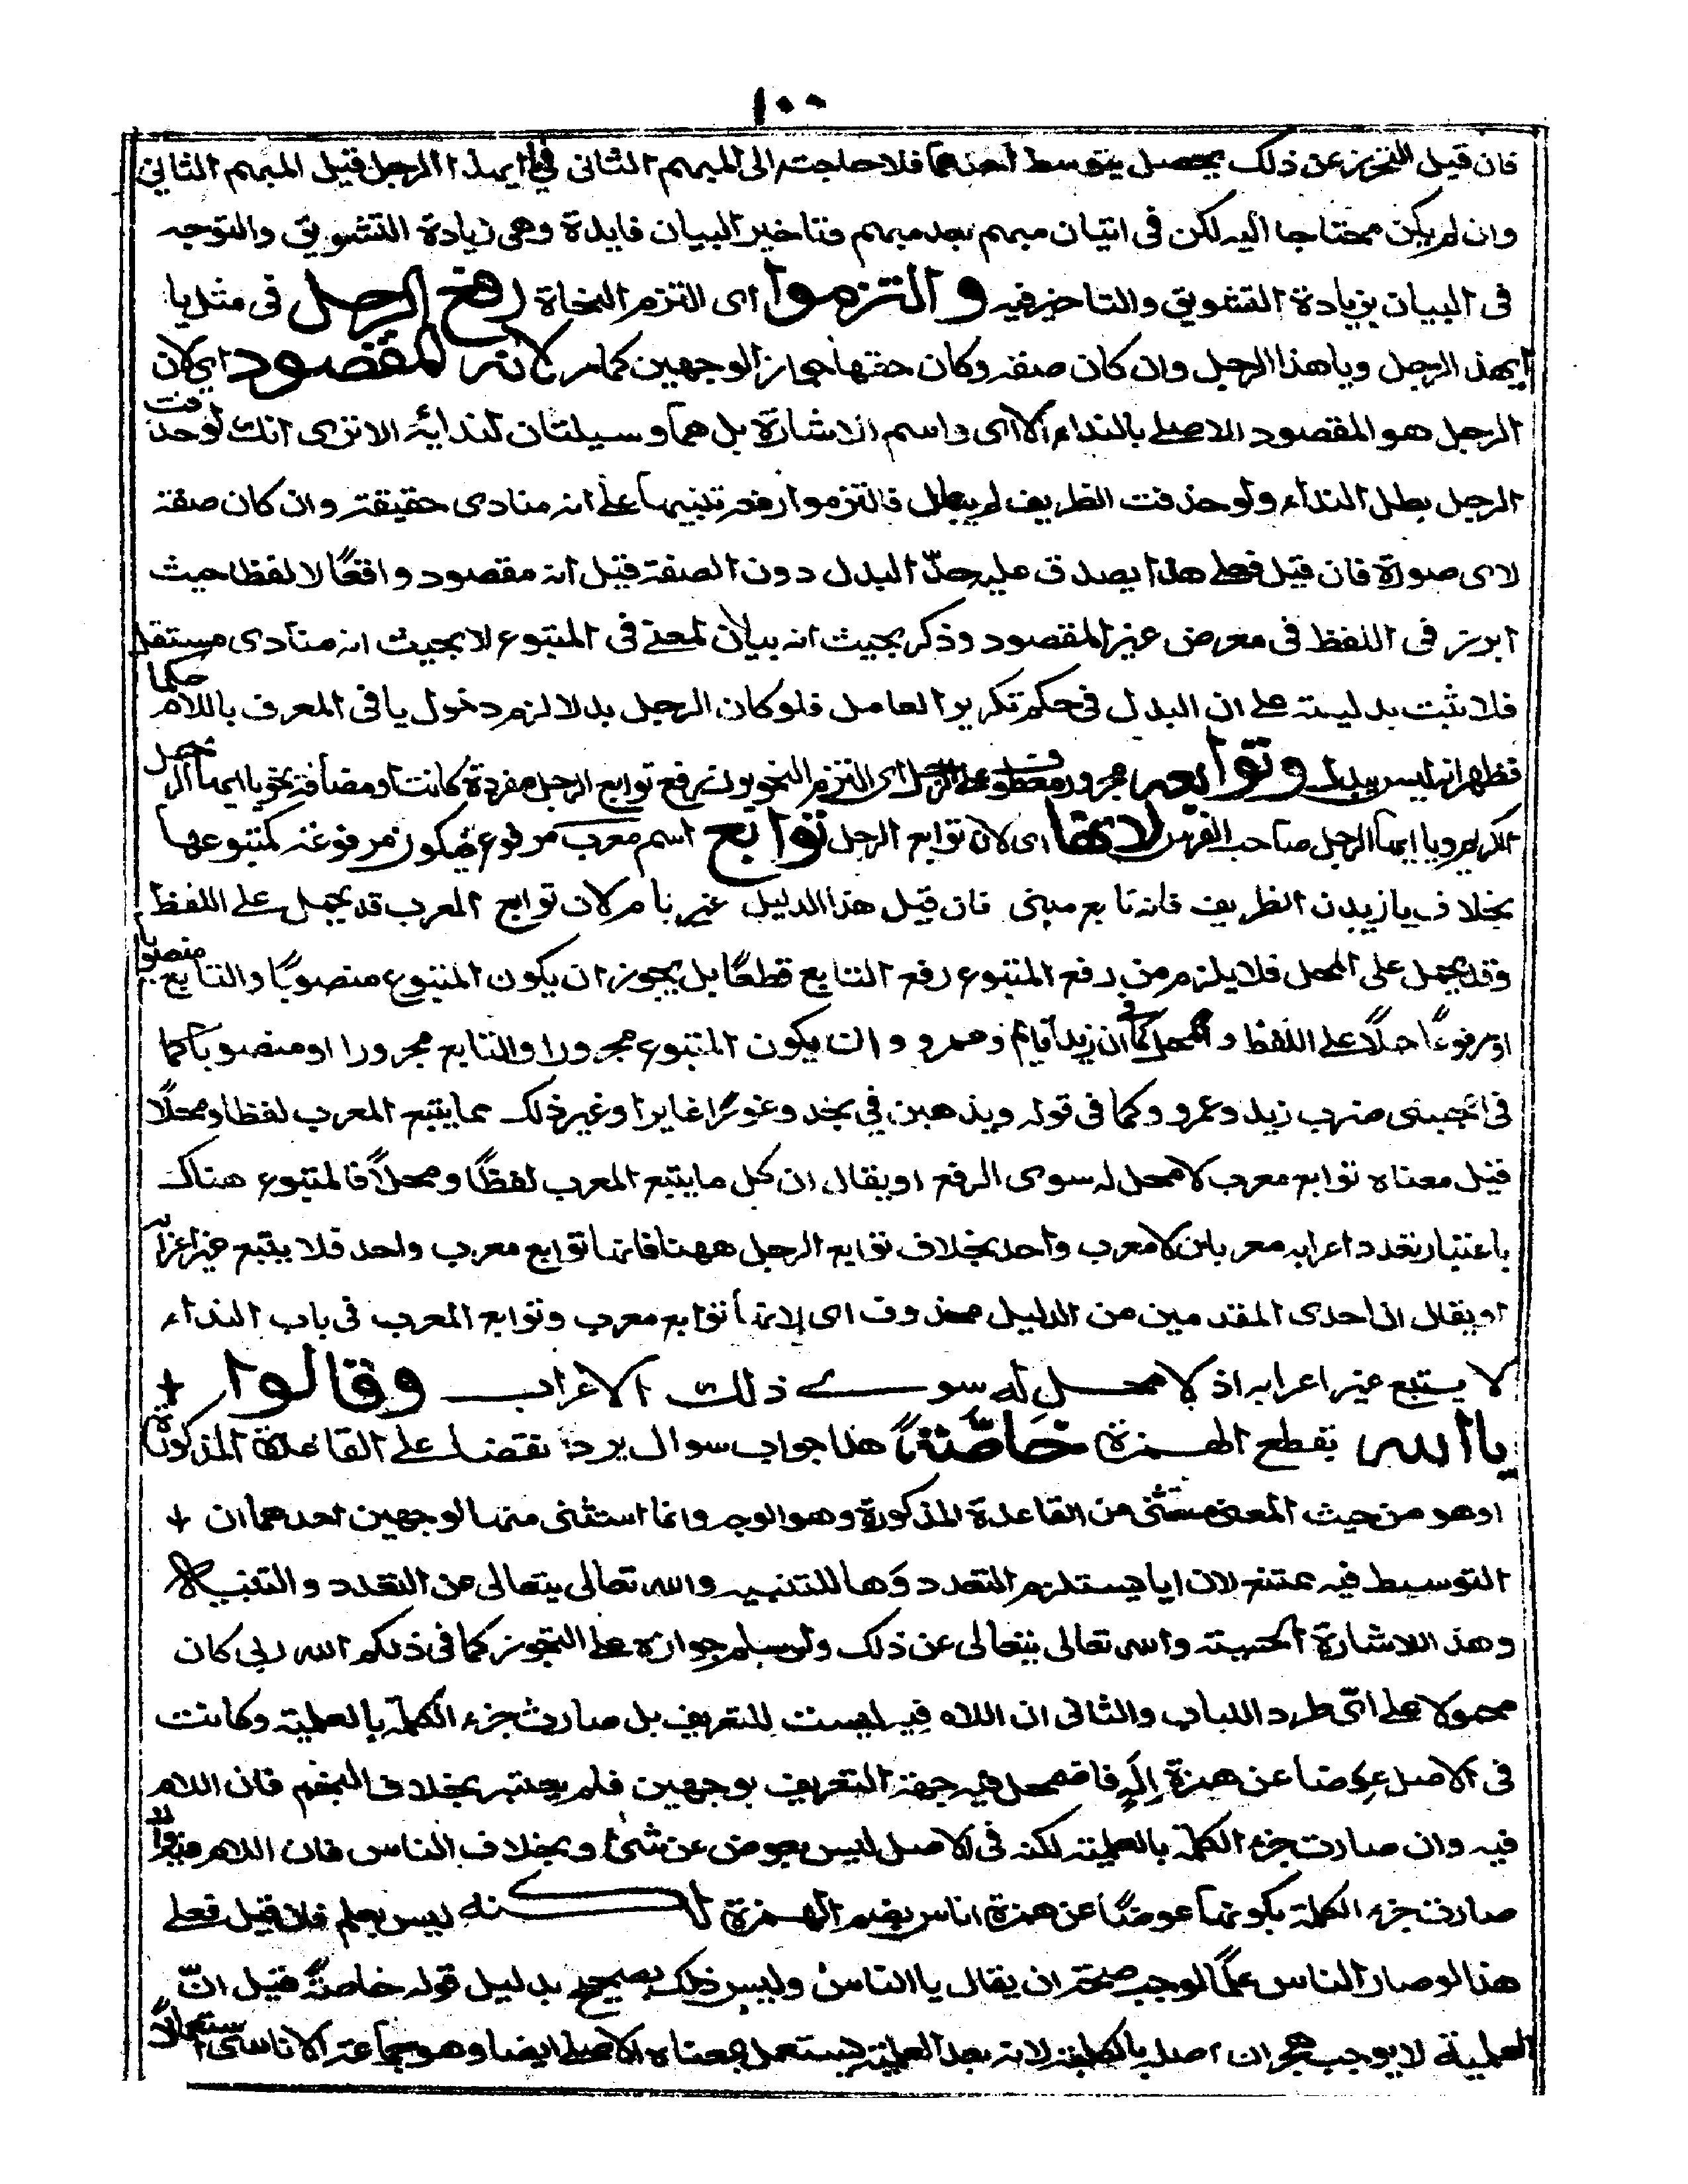 ١٠٠
فان قيل التحرز عن ذلك يحصل بتوسط احدهما فلا حاجة الى المبهم الثانى فى ايهذا الرجل قيل المبهم الثانى
وان لم يكن محتاجا اليه لكن فى اتيان مبهم بعد مبهم وتاخير البيان فايدة وهى زيادة التشويق والتوجه
فى البيان بزيادة التشويق والتاخير فيه والتزموا اى التزم النحاة رفع الرجل فى مثل يا
ايهذ الرجل ويا هذا الرجل وان كان صفة وكان حقها جواز الوجهين كما مر لانه المقصود اى لان
الرجل هو المقصود الاصلى بالنداء لا اى واسم الاشارة بل هما وسيلتان لندائه الا ترى انك لو حذفت
الرجل بطل النداء ولو حذفت الظريف لم يبطل فالتزموا رفعه تنبيها على انه منادى حقيقة وان كان صفة
لاى صورة فان قيل فعلى هذا يصدق عليه حدّ البدل دون الصفة قيل انه مقصود واقعًا لا لفظا حيث
ابرز فى اللفظ فى معرض غير المقصود وذكر بحيث انه بيان لمعنى فى المتبوع لا بحيث انه منادى مستقل
فلا يثبت بدليته على ان البدل فى حكم تكرير العامل فلو كان الرجل بدلا لزم دخول يا فى المعرف باللام حكما
فظهر انه ليس ببدل وتوابعه مجرور معطوف على الرجل اى التزم النحويون رفع توابع الرجل مفردة كانت او مضافة نحو يا ايها الرجل
الكريم ويا ايها الرجل صاحب الفرس لانها اى لان توابع الرجل توابع اسم معرب مرفوع فيكون مرفوعة كمتبوعها
بخلاف يا زيدن الظريف فانه تابع مبنى فان قيل هذا الدليل غير تام لان توابع المعرب قد يحمل على اللفظ
وقد يحمل على المحل فلا يلزم من رفع المتبوع رفع التابع قطعًا بل يجوز ان يكون المتبوع منصوبًا والتابع منصوبا
او مرفوعًا حملًا على اللفظ والمحل كما فى ان زيدا قايم وعمرو وان يكون المتبوع مجرورا والتابع مجرورا او منصوبا كما
فى اعجبنى ضرب زيد وعمرو وكما فى قوله ويذهبن فى نجد وغورًا غايرا وغير ذلك مما يتبع المعرب لفظا ومحلًا
قيل معناه توابع معرب لا محل له سوى الرفع او يقال ان كل ما يتبع المعرب لفظًا ومحلًا فالمتبوع هناك
باعتبار تعدد اعرابه معربان لا معرب واحد بخلاف توابع الرجل ههنا فانها توابع معرب واحد فلا يتبع غير اعرابه
او يقال ان احدى المقدمين من الدليل محذوف اى لانها توابع معرب وتوابع المعرب فى باب النداء
لا يستتبع غير اعرابه اذ لا محل له سوى ذلك الاعراب وقالوا +
يا الله بقطع الهمزة خاصّةً هذا جواب سوال يرد نقضا على القاعدة المذكورة
او هو من حيث المعنى مستثنى من القاعدة المذكورة وهو الوجه وانما استثنى منها لوجهين احدهما ان +
التوسيط فيه ممتنع لان ايا يستلزم التعدد وها للتنبيه والله تعالى يتعالى عن التعدد والتنبيه
وهذ الاشارة الحسية والله تعالى يتعالى عن ذلك ولو سلم جوازه على التجوز كما فى ذلكم الله ربى كان
محمولا على اىّ طرد اللباب والثانى ان اللام فيه ليست للتعريف بل صارت جزء الكلمة بالعلمية وكانت
فى الاصل عوضا عن همزة اِلٰهٍ فاضمحل فيه جهة التعريف بوجهين فلم يعتبر بخلاف النجم فان اللام
فيه وان صارت جزء الكلمة بالعلمية لكنه فى الاصل ليس بعوض عن شئ وبخلاف الناس فان اللام فيه وان
صارت جزء الكلمة بكونها عوضًا عن همزة اناس بضم الهمزة لكنه ليس بعلم فان قيل فعلى
هذا لو صار الناس علمًا لوجب صحة ان يقال يا الناس وليس ذلك بصحيح بدليل قوله خاصةً قيل انّ
العلمية لا يوجب هجران اصله بالكلية لانه بعد العلمية يستعمل بمعناه الاصلى ايضا وهو جماعة الاناسى استعمالًا